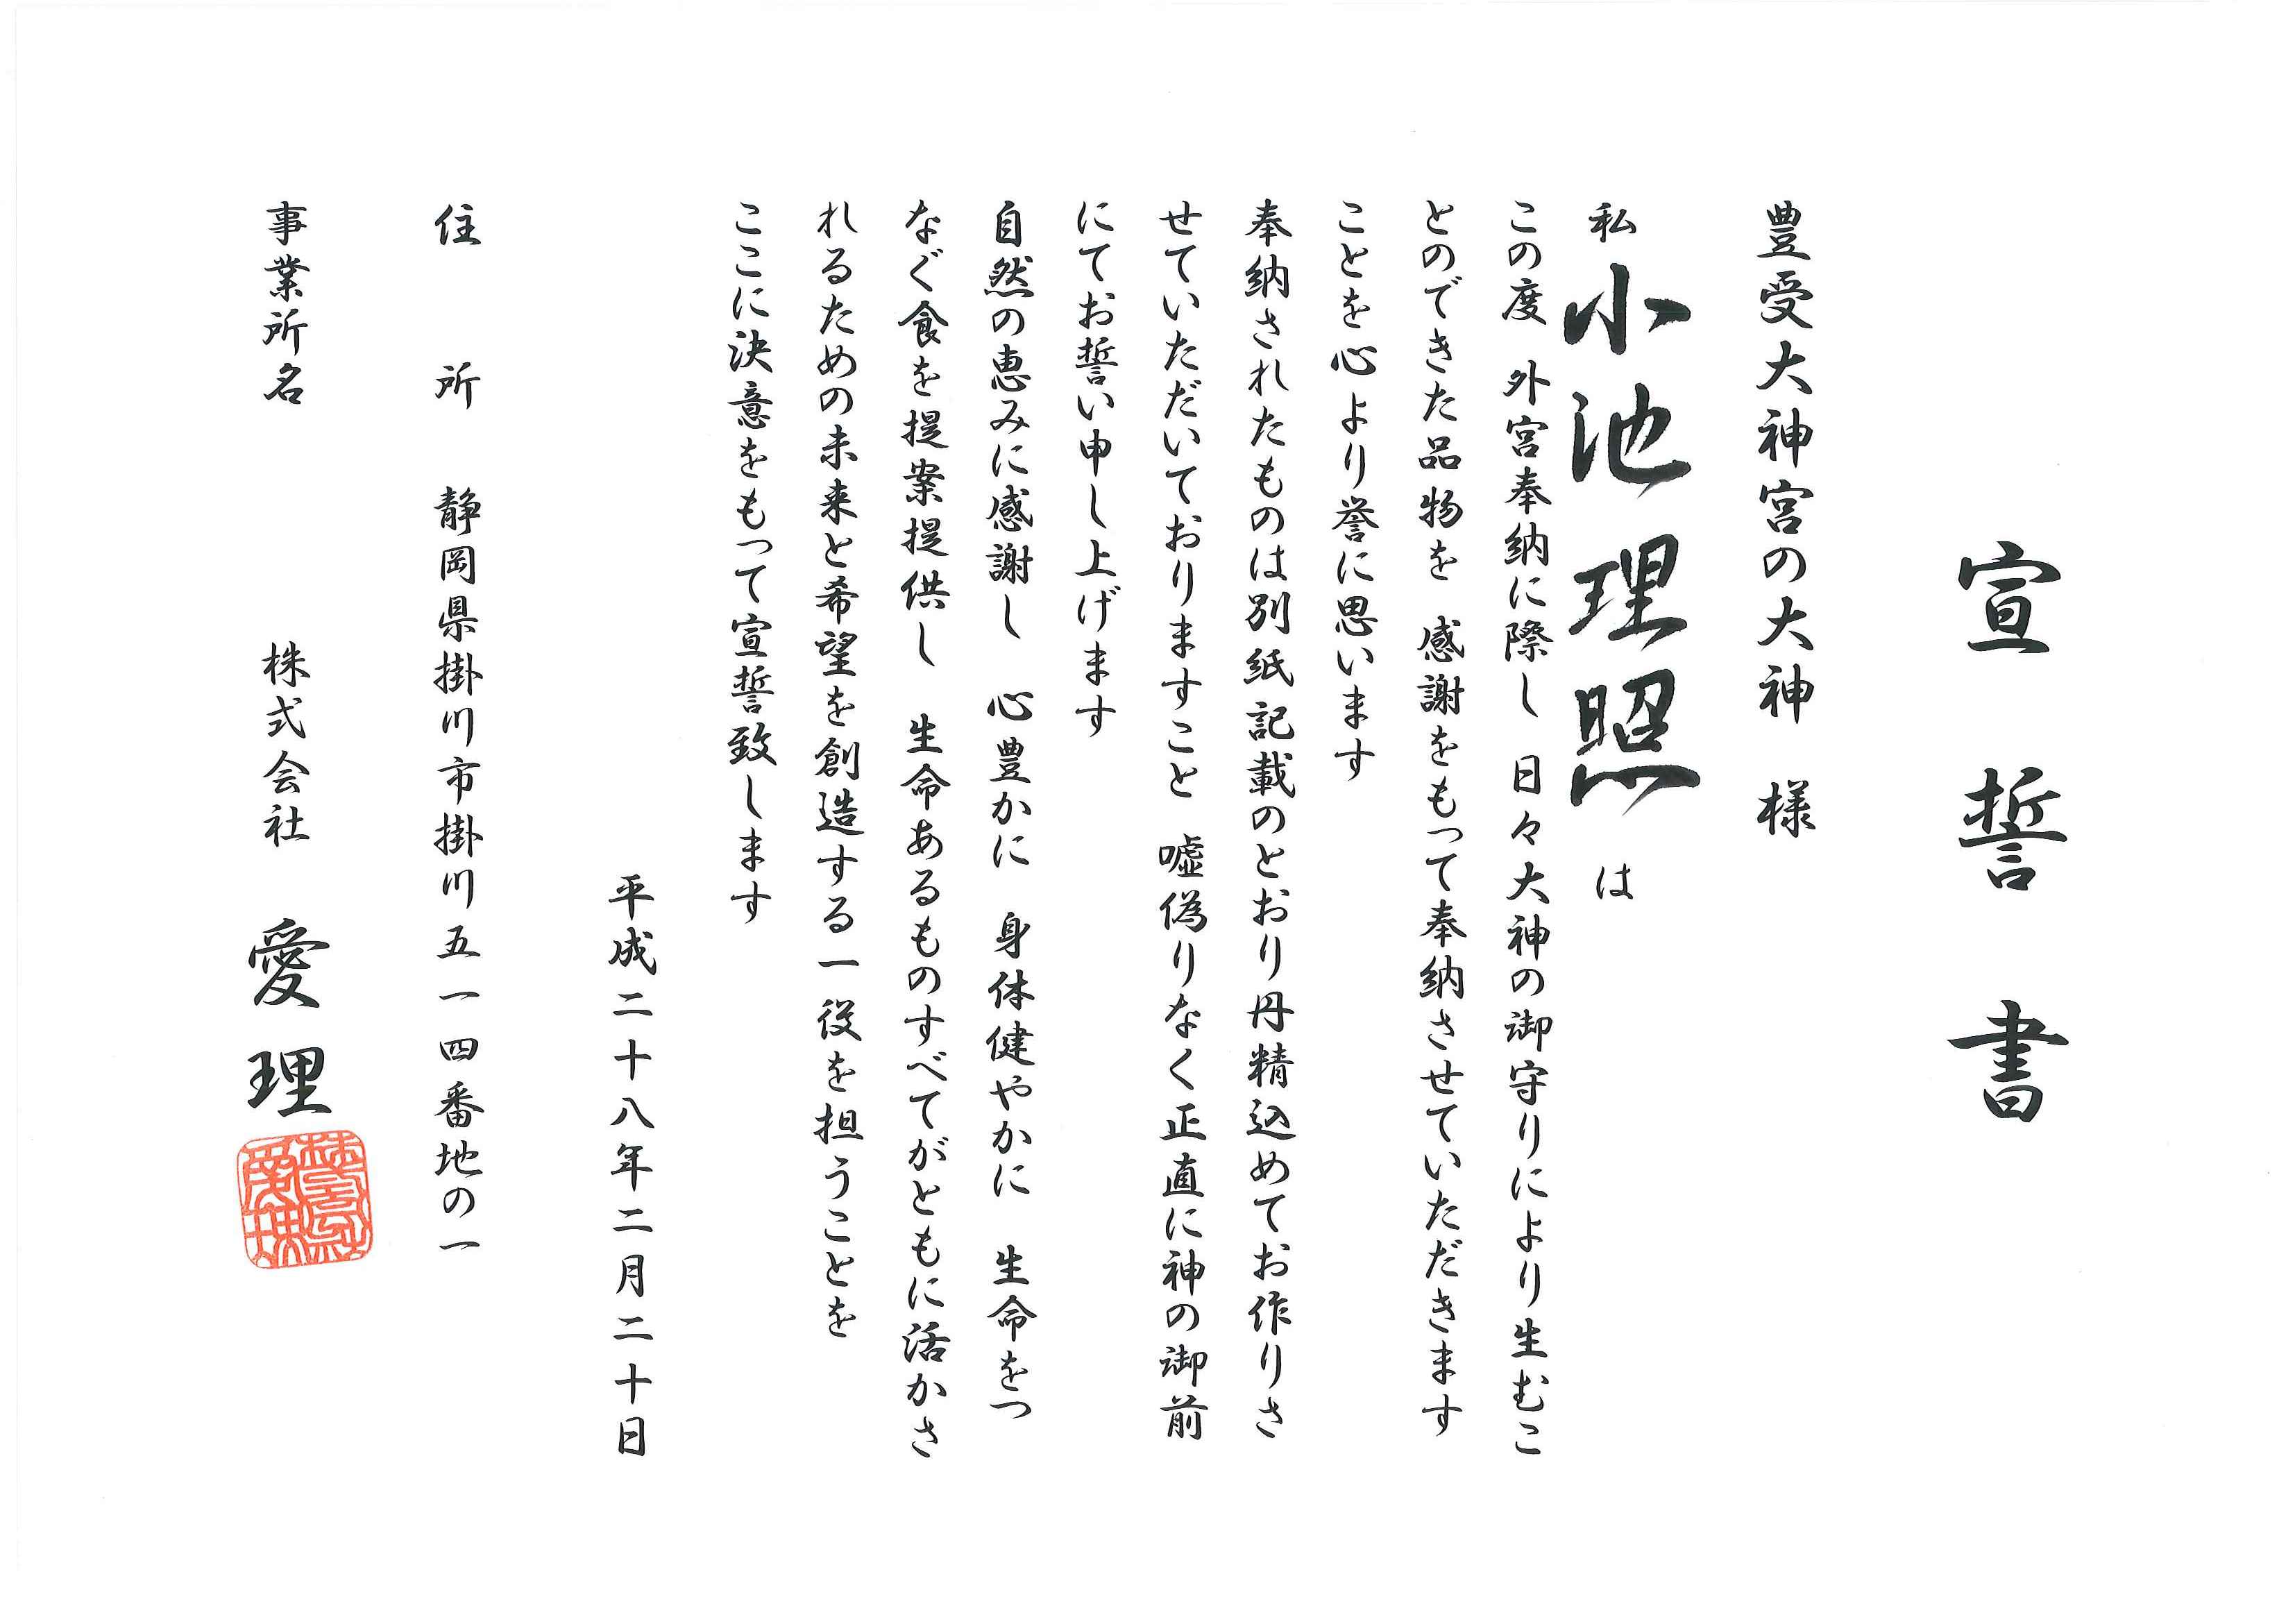 宣誓書
豊受大神宮の大神 様
私 小池理照 は
この度 外宮奉納に際し 日々大神の御守りにより生むこ
とのできた品物を 感謝をもって奉納させていただきます
ことを心より誉に思います
奉納されたものは別紙記載のとおり丹精込めてお作りさ
せていただいておりますこと 嘘偽りなく正直に神の御前
にてお誓い申し上げます
自然の恵みに感謝し 心豊かに 身体健やかに 生命をつ
なぐ食を提案提供し 生命あるものすべてがともに活かさ
れるための未来と希望を創造する一役を担うことを
ここに決意をもって宣誓致します
平成二十八年二月二十日
住所 静岡県掛川市掛川五一四番地の一
事業所名 株式会社 愛理